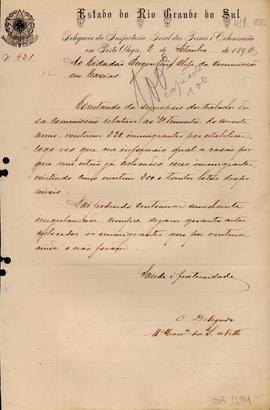 Estado do Rio Grande do Sul
Delegacia da Inspectoria Geral das Terras e Colonisação
em Porto Alegre, 2 de Setembro de 1892
N. 421
Ao Cidadão Engenheiro Chefe da Commissão
em Caxias
Constando da synopse dos trabalhos des-
sa commissão relativo ao 1º trimestre do corrente
anno, existirem 222 immigrantes por estabelecer,
logo vos que me informeis qual a razão por
que não estão já collocados esses immigrantes,
existindo como existem 300 e tantos lotes dispo-
niveis.
Não podendo continuar semelhante
irregularidade cumpre sejam quanto antes
collocados os immigrantes, que por ventura
ainda o não foram.
Saude e fraternidade
O Delegado
DIR 1294